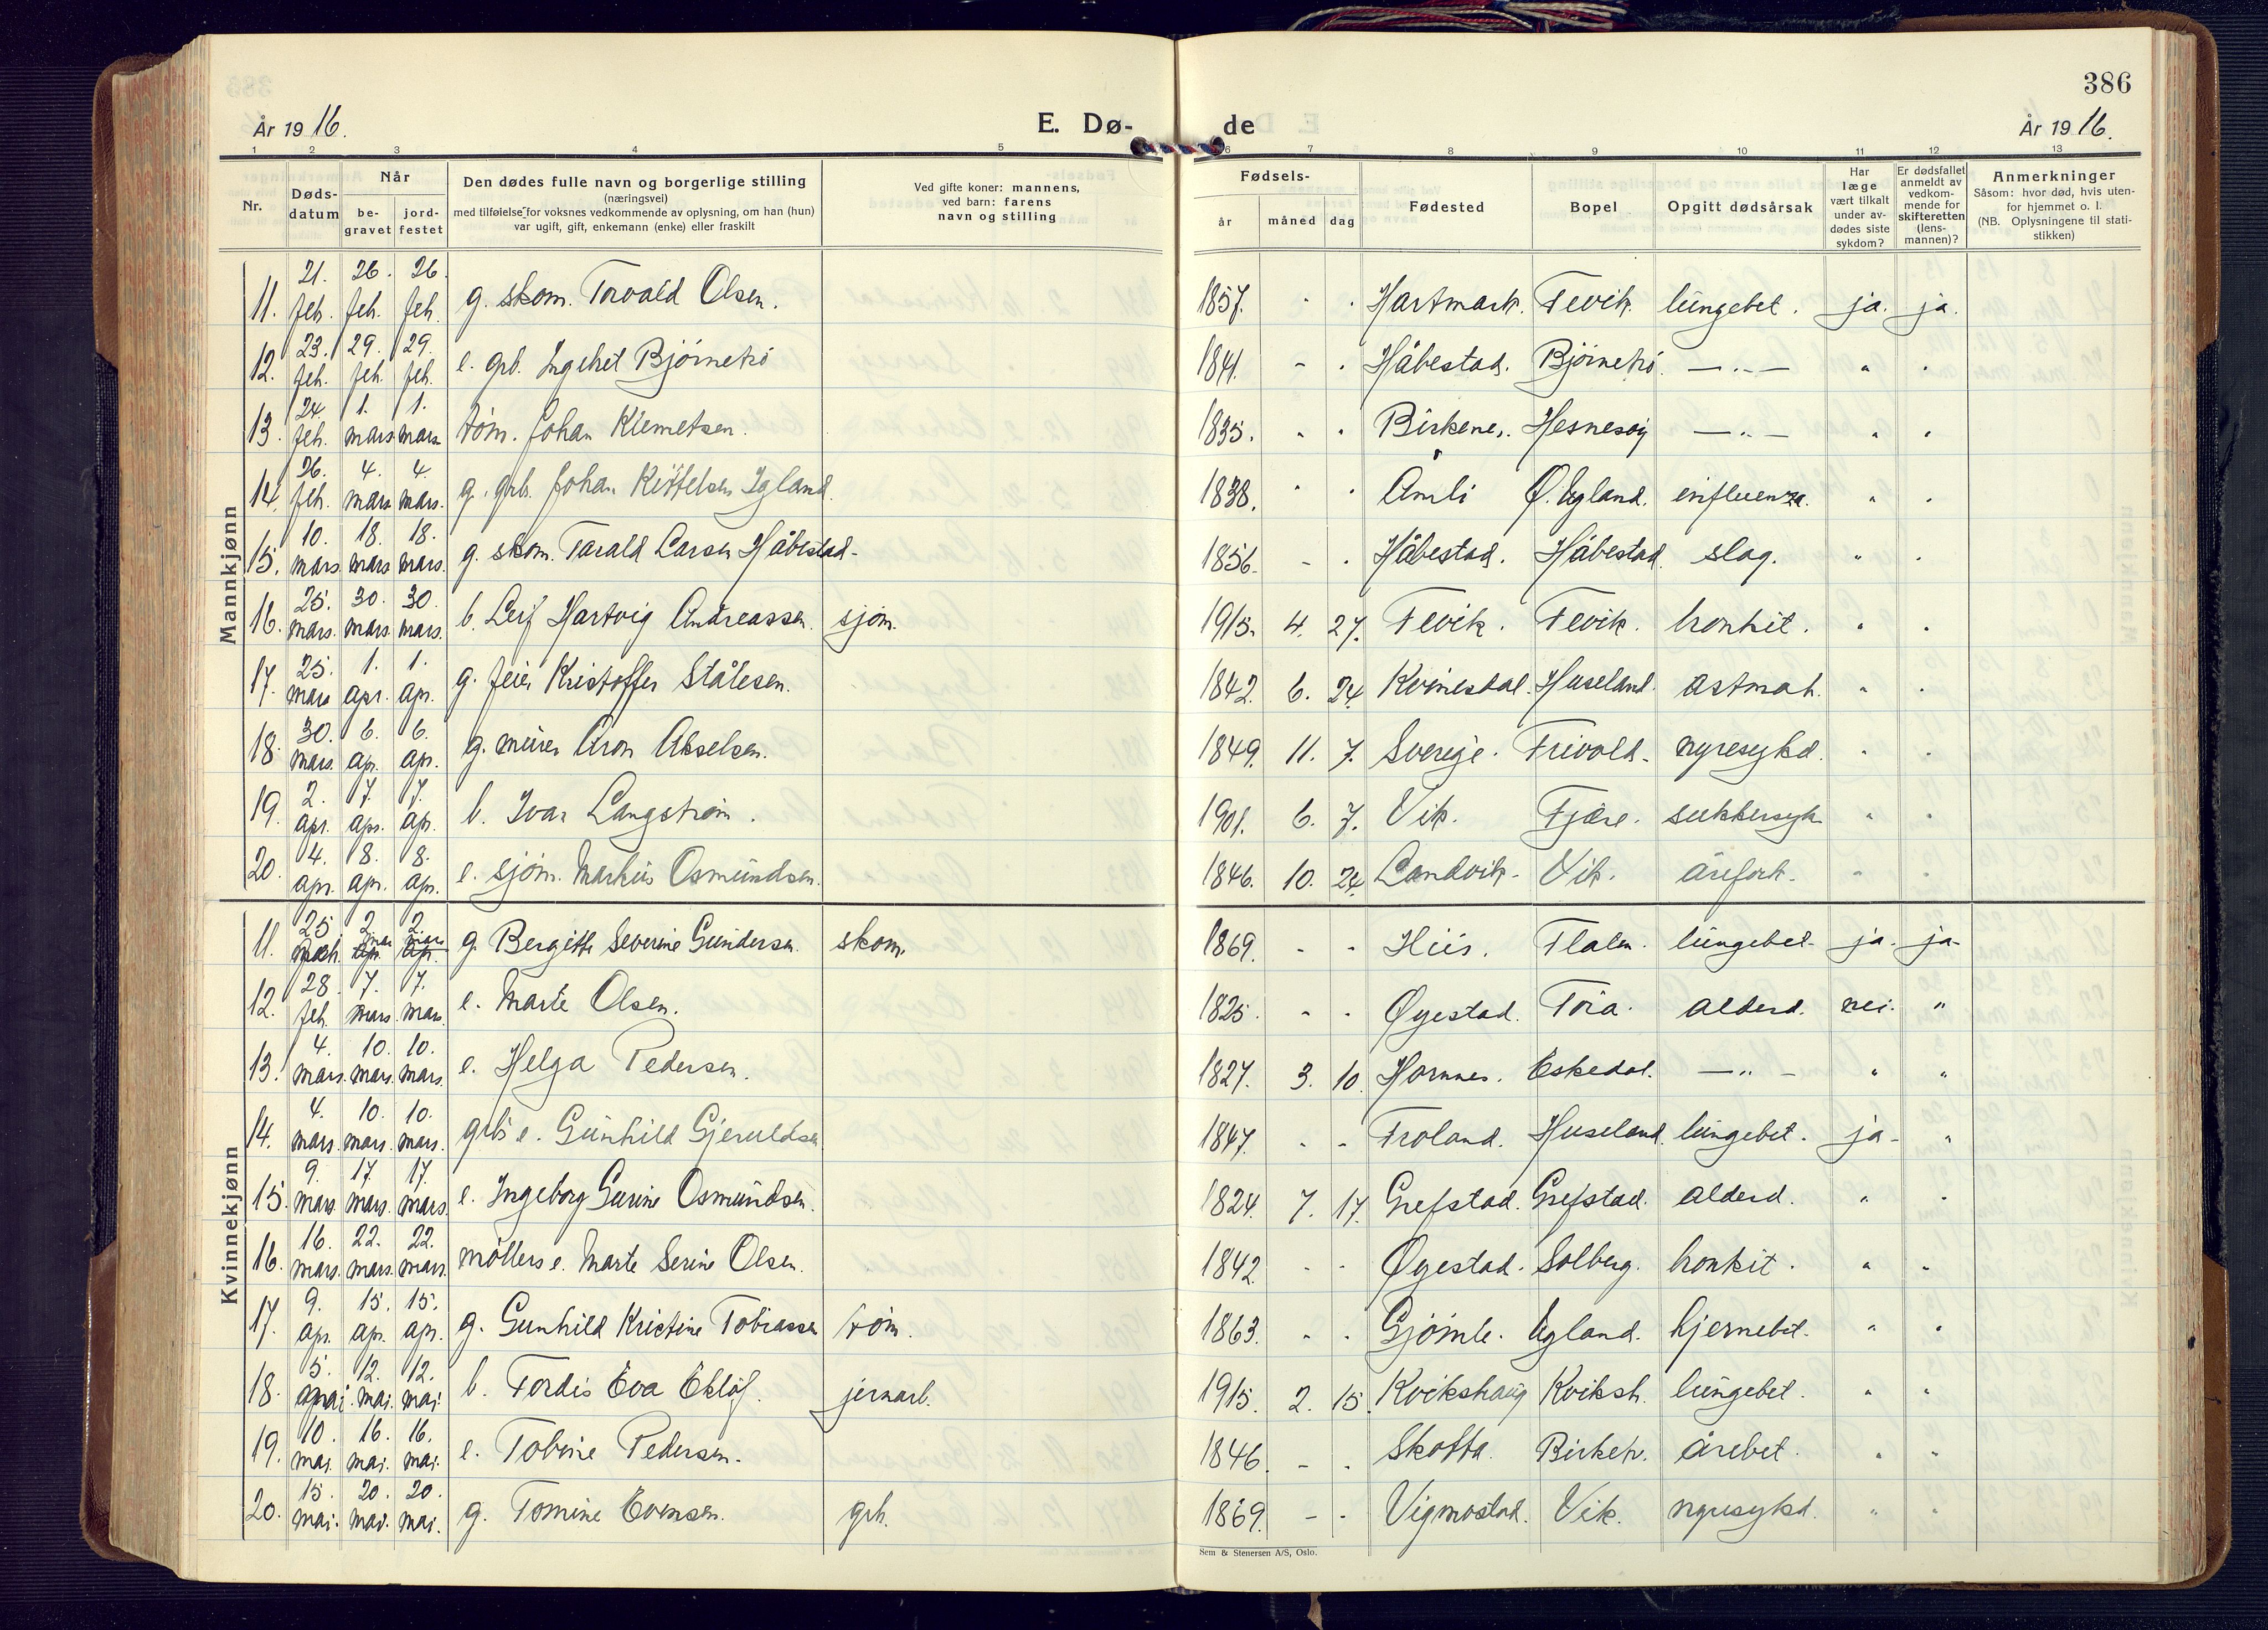 386
År 1916.
E. Dø-
de
År 1916.
1 2 3 4 5 6 7 8 9 10 11 12 13
Nr.
Døds-
datum
Når
be-
gravet
jord-
festet
Den dødes fulle navn og borgerlige stilling
(næringsvei)
med tilføielse for voksnes vedkommende av oplysning, om han (hun)
var ugift, gift, enkemann (enke) eller fraskilt
Ved gifte koner: mannens,
ved barn: farens
navn og stilling
Fødsels-
år måned dag
Fødested
Bopel
Opgitt dødsårsak
Har
læge
vært tilkalt
under av-
dødes siste
sykdom?
Er dødsfallet
anmeldt av
vedkom-
mende for
skifteretten
(lens-
mannen)?
Anmerkninger
Såsom: hvor død, hvis uten-
for hjemmet o. l.
(NB. Oplysningene til stati-
stikken)
Mannkjønn
11. 21. feb. 26. feb. 26. feb. g. skom. Torvald Olsen. 1857. - - Hartmark. Fevik. lungebet. ja. ja.
12. 23. feb. 29. feb. 29. feb. e. grb. Ingebret Bjørnetrø 1841. - - Håbestad. Bjørnetrø. —"— " "
13. 24. feb. 1. mars 1. mars tøm. Johan Klemetsen. 1835. - - Birkenes. Hesnesøy —"— " "
14. 26. feb. 4. mars 4. mars. g. grb. Johan Kittelsen Igland. 1838. - - Åmli Ø. Egland. influenza. " "
15. 10. mars 18. mars 18. mars. g. skom. Tarald Larsen Håbestad- 1856. - - Håbestad. Håbestad. slag. " "
16. 25. mars. 30. mars. 30. mars. b. Leif Hartvig Andreassen. sjøm. 1915. 4. 27. Fevik. Fevik. bronkit. " "
17. 25. mars 1. apr. 1. apr. g. feier Kristoffer Stålesen. 1842. 6. 24. Kvinesdal. Huseland. astmah. " "
18. 30. mars. 6. apr. 6. apr. g. murer Aron Akselsen. 1849. 11. 7. Sverige. Frivold. nyresykd. " "
19. 2. apr. 7. apr. 7. apr. b. Ivar Langstrøm. 1901. 6. 7. Vik. Fjære. sukkersyk. " "
20. 4. apr. 8. apr. 8. apr. e. sjøm. Markus Osmundsen. 1846. 10. 24. Landvik. Vik. årefork. " "
Kvinnekjønn
11. 25 feb. 2. mars 2. mars g. Bergitte Severine Gundersen. skom. 1869. - - Hiis. Flalen. lungebet. ja. ja.
12. 28. feb. 7. mars. 7. mars. e. Marte Olsen. 1825. - - Øyestad. Tøra. alderd. nei. "
13. 4. mars. 10. mars. 10. mars. e. Helga Pedersen. 1827. 3. 10. Hornnes. Eskedal. —"— " "
14. 4. mars. 10. mars. 10. mars. grbs e. Gunhild Gjeruldsen 1847. - - Froland. Huseland. lungebet. ja. "
15. 9. mars. 17. mars. 17. mars. e. Ingeborg Gurine Osmundsen. 1824. 7. 17. Grefstad. Grefstad. alderd. " "
16. 16. mars. 22. mars. 22. mars. møllers e. Marte Serine Olsen. 1842 - - Øyestad. Solberg. bronkit. " "
17. 9. apr. 15. apr. 15. apr. g. Gunhild Kristine Tobiassen tøm. 1863. - - Gjømle. Egland. hjernebet. " "
18. 5. mai. 12. mai. 12. mai b. Tordis Eva Ekløf. jernarb. 1915. 2. 15. Kvikshaug Kviksh. lungebet. " "
19. 10. mai. 16. mai. 16. mai. e. Tobine Pedersen. 1846. - - Skotta. Birket. årebet. " "
20. 15. mai. 20. mai. 20. mai. g. Tomine Evensen. grb. 1869. - - Vigmostad. Vik. nyresykd. " "
Sem & Stenersen A/S, Oslo.